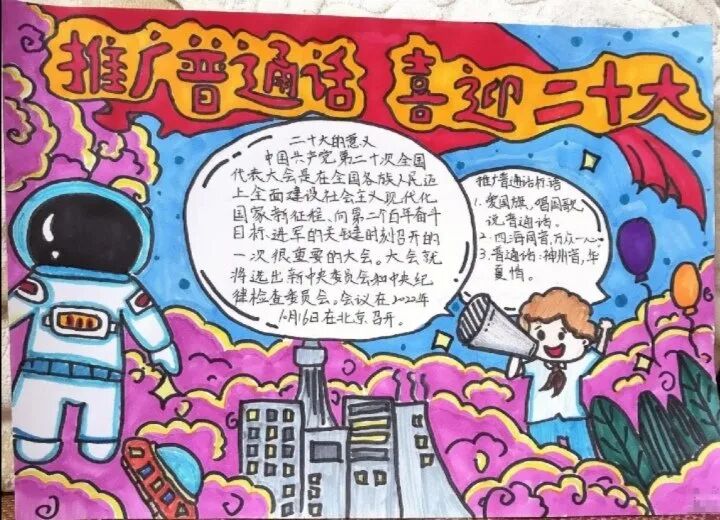 推广普通话 喜迎二十大
二十大的意义
中国共产党第二十次全国
代表大会是在全国各族人民迈
上全面建设社会主义现代化
国家新征程、向第二个百年奋斗
目标、进军的关键时刻召开的
一次很重要的大会。大会就
将选出新中央委员会和中央纪
律检查委员会。会议在2022年
10月16日在北京召开。
推广普通话标语
1、爱国旗、唱国歌
说普通话。
2、四海同音,万众一心
3、普通话:神州音,华
夏情。